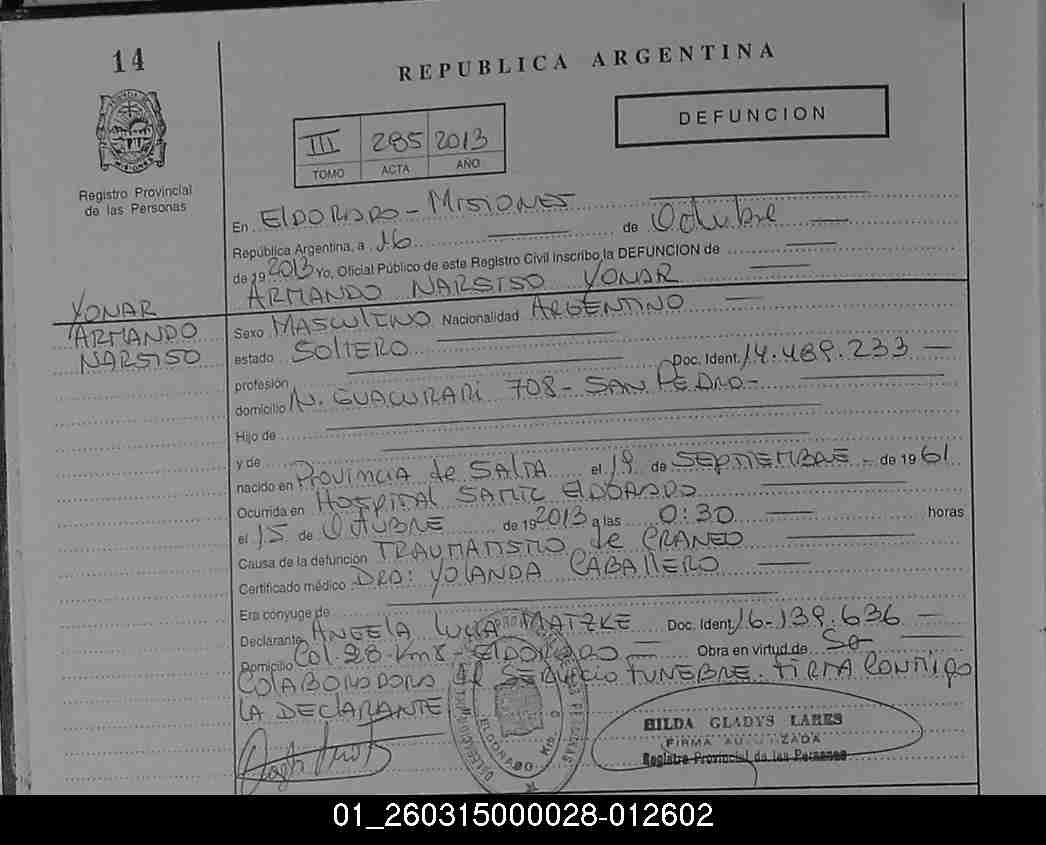 14
REPUBLICA ARGENTINA
DEFUNCION
III 285 2013
TOMO ACTA AÑO
Registro Provincial
de las Personas
En ELDORADO - MISIONES
República Argentina, a 16 de Octubre
de 19 2013 Yo, Oficial Público de este Registro Civil inscribo la DEFUNCION de
ARMANDO NARSISO YONAR
YONAR
ARMANDO
NARSISO
Sexo MASCULINO Nacionalidad ARGENTINO
estado SOLTERO
profesión Doc. Ident. 14.489.233
domicilio N. GUACURARI 708 - SAN PEDRO -
Hijo de
y de
nacido en PROVINCIA de SALTA el 19 de SEPTIEMBRE - de 19 61
Ocurrida en HOSPITAL SAMIC ELDORADO
el 15 de OCTUBRE de 19 2013 a las 0:30 horas
Causa de la defunción TRAUMATISMO de CRANEO
Certificado médico DRA: YOLANDA CABALLERO
Era conyuge de
Declarante ANGELA LUCIA MATZKE Doc. Ident. 16.139.636
Domicilio Col. 28 - Km 8 - ELDORADO Obra en virtud de Se
COLABORODORO del SERVICIO FUNEBRE. FIRMA CONMIGO
LA DECLARANTE
ELDORADO
HILDA GLADYS LARES
FIRMA AUTORIZADA
Registro Provincial de las Personas
01_260315000028-012602